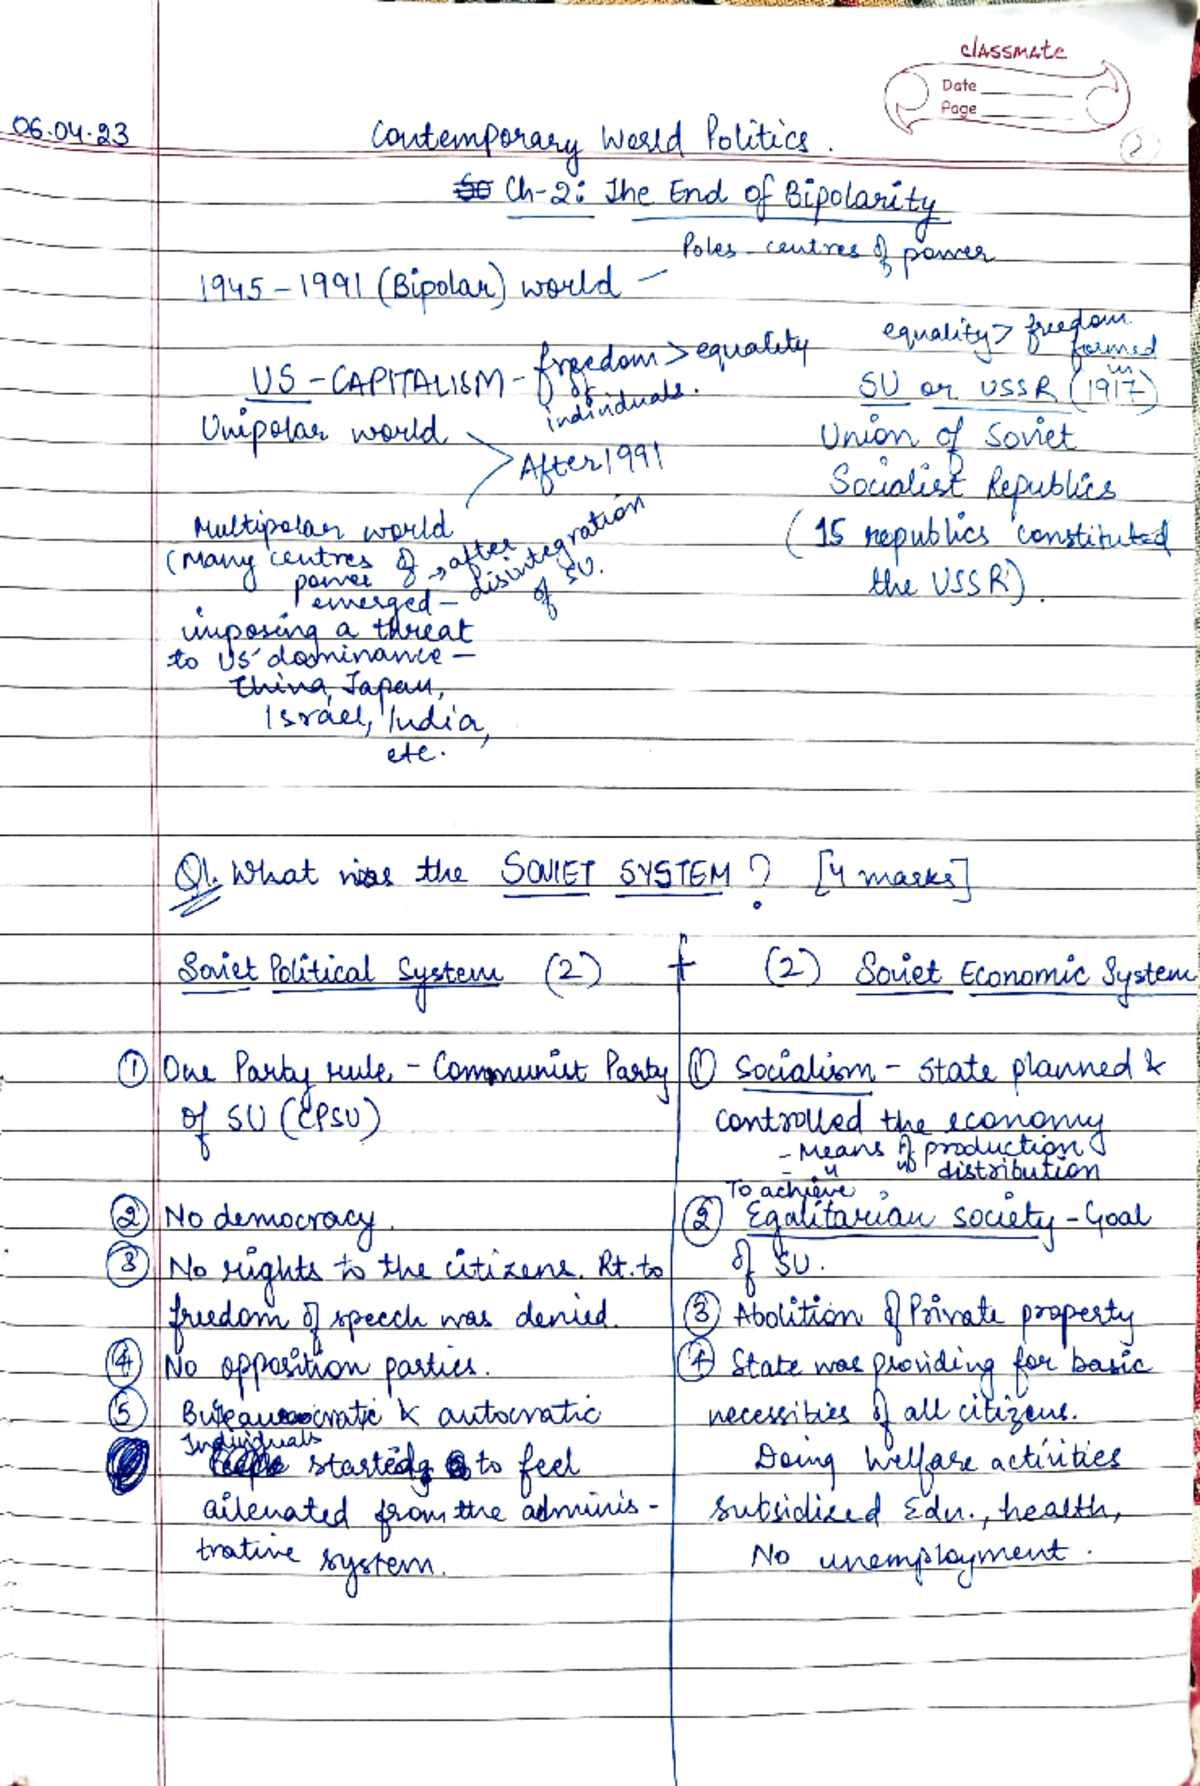 classmate
Date
Page
06.04.23
Contemporary World Politics.
2
Ch-2: The End of Bipolarity
Poles - centres of power
1945-1991 (Bipolar) world -
US - CAPITALISM - freedom > equality
of
individuals.
equality > freedom
formed
in
SU or USSR (1917)
Union of Soviet
Socialist Republics
(15 republics constituted
the USSR).
Unipolar world
After 1991
Multipolar world
(Many centres of
power
emerged -
→ after
disintegration
of SU.
imposing a threat
to US dominance -
China, Japan,
Israel, India,
etc.
Q1. What was the SOVIET SYSTEM? [4 marks]
Soviet Political System (2) + (2) Soviet Economic System
① One Party rule - Communist Party
of SU (CPSU)
② No democracy.
③ No rights to the citizens. Rt. to
freedom of speech was denied.
④ No opposition parties.
⑤ Bureaucratic & autocratic
Individuals
started to feel
ailenated from the adminis-
trative system.
① Socialism - State planned &
controlled the economy
- Means of production
- " " distribution
To achieve
② Egalitarian society - Goal
of SU.
③ Abolition of Private property
④ State was providing for basic
necessities of all citizens.
Doing welfare activities
subsidized Edu., health,
No unemployment.